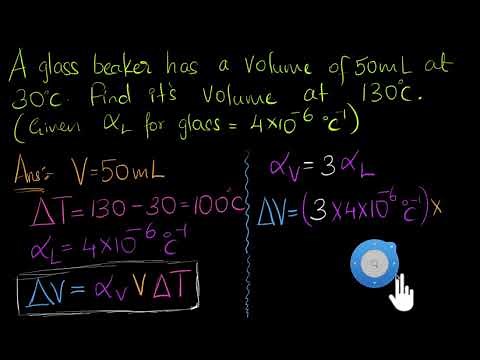 A glass beaker has a volume of 50mL at
30°C. Find it's volume at 130°C.
(Given αL for glass = 4×10⁻⁶ °C⁻¹)
Ans:- V=50mL
ΔT=130-30=100°C
αL=4×10⁻⁶ °C⁻¹
ΔV = αV V ΔT
αV=3αL
ΔV=(3×4×10⁻⁶ °C⁻¹)×